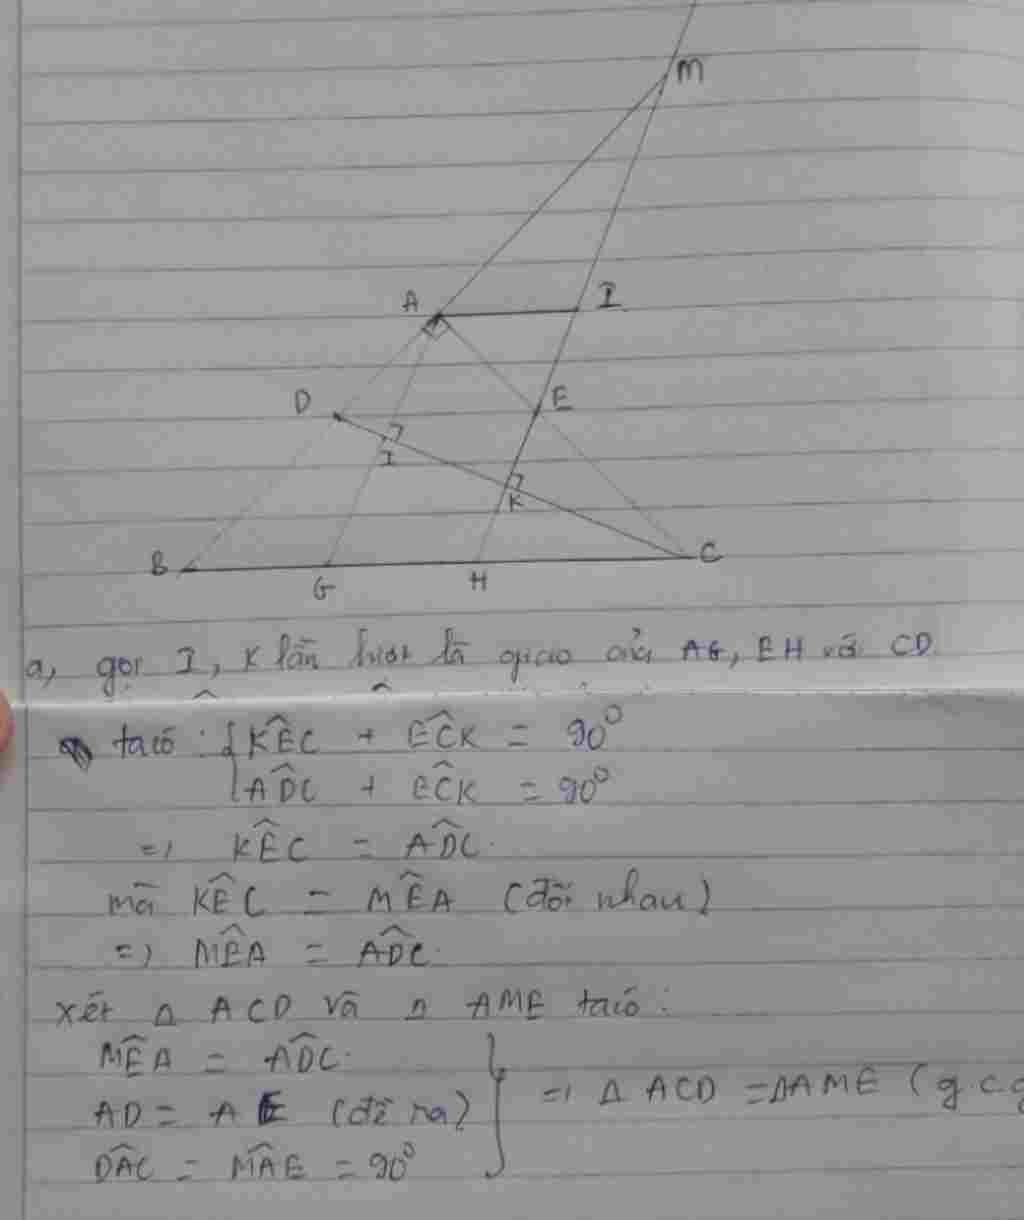 M
A
I
D
E
I
K
B
G
H
C
a, gọi I, K lần lượt là giao của AG, EH với CD
ta có : { KÊC + EĈK = 90⁰
AD̂C + EĈK = 90⁰
=> KÊC = AD̂C.
mà KÊC = MÊA (đối nhau)
=> MÊA = AD̂C.
xét Δ ACD và Δ AME ta có :
MÊA = AD̂C.
AD = AE (đề ra)
DÂC = MÂE = 90⁰
=> Δ ACD = ΔAME (g c g